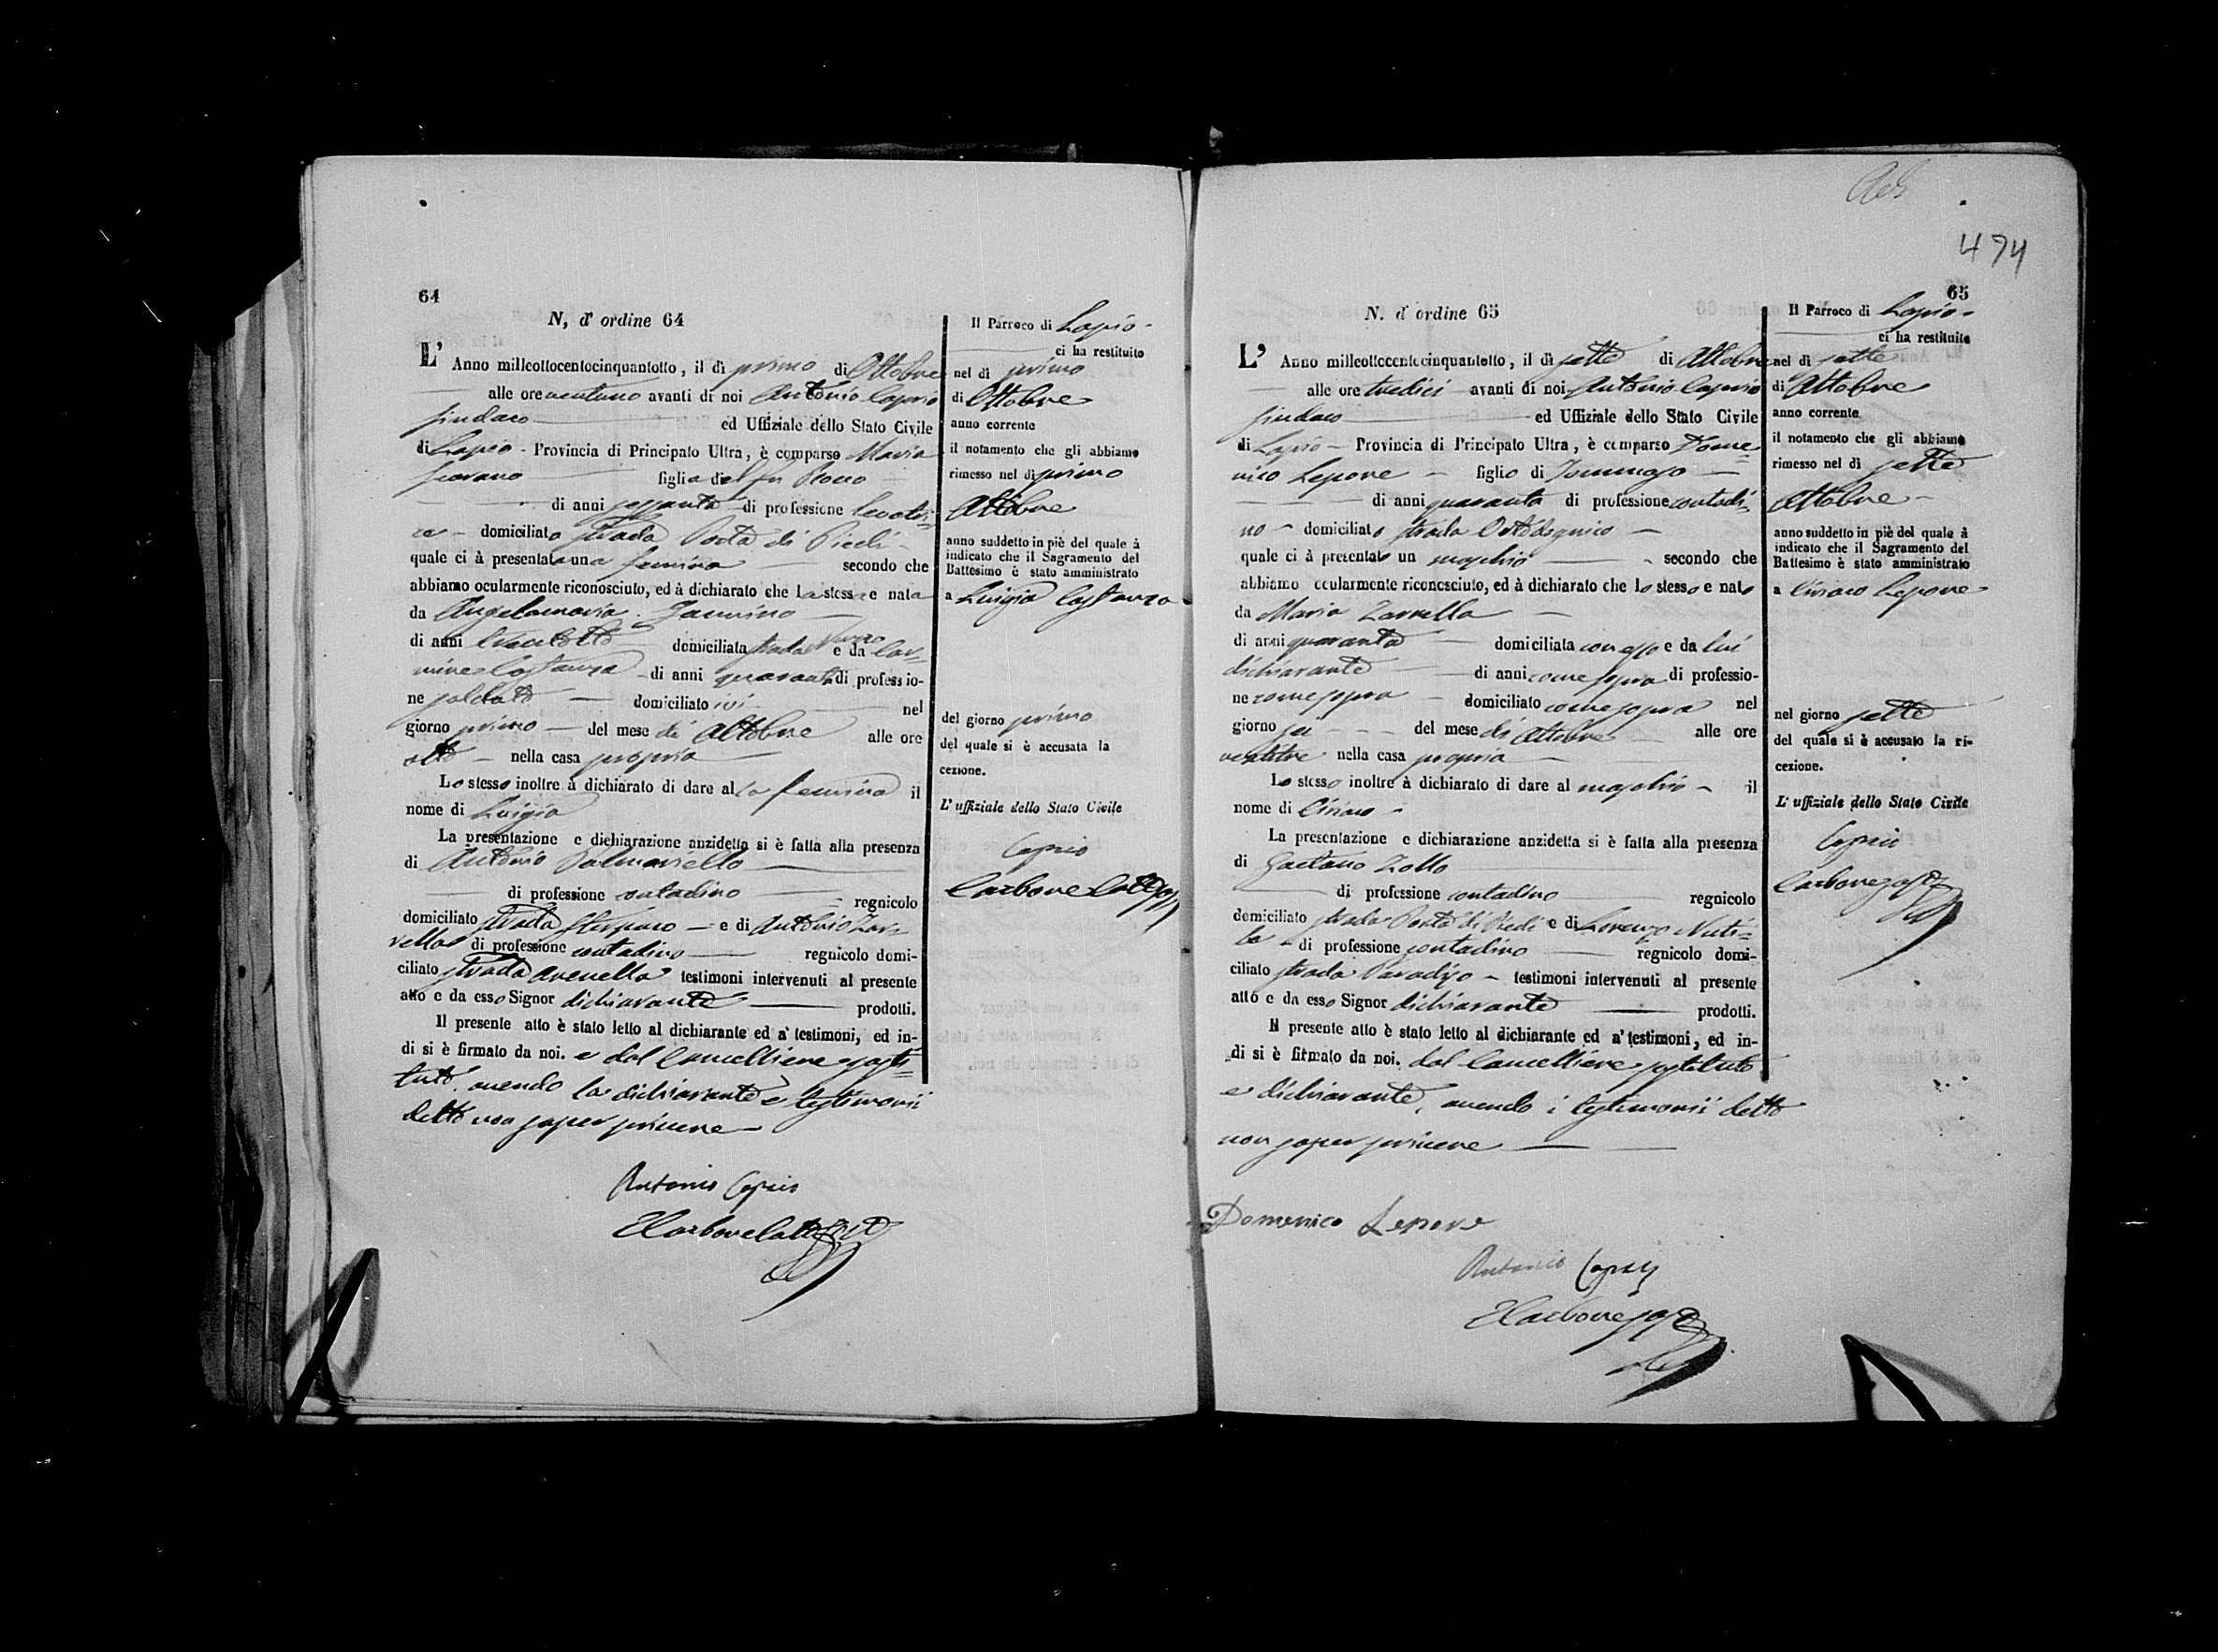 64
N, d' ordine 64
L' Anno milleottocentocinquantotto, il dì primo di Ottobre
alle ore ventuno avanti di noi Antonio Caprio
Sindaco ed Uffiziale dello Stato Civile
di Lapio - Provincia di Principato Ultra, è comparso Maria
figlia del fu Rocco
di anni sessanta di professione levatri=
ce - domiciliata strada Porta di Piedi -
quale ci à presentata una femina secondo che
abbiamo ocularmente riconosciuto, ed à dichiarato che la stessa e nata
da Angelamaria Iannino
di anni domiciliata strada e da Car=
mine Costanza di anni quaranta di professio-
ne soldato domiciliato ivi nel
giorno primo del mese di Ottobre alle ore
otto nella casa propria
Lo stesso inoltre à dichiarato di dare alla femina il
nome di Luigia
La presentazione e dichiarazione anzidetta si è fatta alla presenza
di Antonio Palmariello
di professione contadino regnicolo
domiciliato strada e di Antonio Zar=
rella di professione contadino regnicolo domi-
ciliato strada Arenella testimoni intervenuti al presente
atto e da esso Signor dichiarante prodotti.
Il presente atto è stato letto al dichiarante ed a' testimoni, ed in-
di si è firmato da noi. e dal Cancelliere sosti=
tuto, avendo la dichiarante e testimonii
detto non saper scrivere
Antonio Caprio
Il Parroco di Lapio -
ci ha restituito
nel dì primo
di Ottobre
anno corrente
il notamento che gli abbiamo
rimesso nel dì primo
Ottobre
anno suddetto in piè del quale à
indicato che il Sagramento del
Battesimo è stato amministrato
a Luigia Costanza
del giorno primo
del quale si è accusata la
cezione.
L' uffiziale dello Stato Civile
Caprio
474
65
N. d' ordine 65
L' Anno milleottocentocinquantotto, il dì sette di Ottobre
alle ore tredici avanti di noi Antonio Caprio
Sindaco ed Uffiziale dello Stato Civile
di Lapio - Provincia di Principato Ultra, è comparso Dome=
nico Lepore - figlio di Tommaso
di anni quaranta di professione contadi=
no - domiciliato strada
quale ci à presentato un maschio secondo che
abbiamo ocularmente riconosciuto, ed à dichiarato che lo stesso e nato
da Maria Zarrella
di anni quaranta domiciliata con esso e da lui
dichiarante di anni come sopra di professio-
ne come sopra domiciliato come sopra nel
giorno sei del mese di Ottobre alle ore
ventitre nella casa propria
Lo stesso inoltre à dichiarato di dare al maschio - il
nome di Ciriaco -
La presentazione e dichiarazione anzidetta si è fatta alla presenza
di Gaetano Zollo
di professione contadino regnicolo
domiciliato strada Porta di Piedi e di Lorenzo
di professione contadino regnicolo domi-
ciliato strada Paradiso - testimoni intervenuti al presente
atto e da esso Signor dichiarante prodotti.
Il presente atto è stato letto al dichiarante ed a' testimoni, ed in-
di si è firmato da noi. dal Cancelliere sostituto
e dichiarante, avendo i testimonii detto
non saper scrivere
Domenico Lepore
Antonio Caprio
Il Parroco di Lapio -
ci ha restituito
nel dì sette
di Ottobre
anno corrente
il notamento che gli abbiamo
rimesso nel dì sette
Ottobre -
anno suddetto in piè del quale à
indicato che il Sagramento del
Battesimo è stato amministrato
a Ciriaco Lepore
nel giorno sette
del quale si è accusato la ri-
cezione.
L' uffiziale dello Stato Civile
Caprio